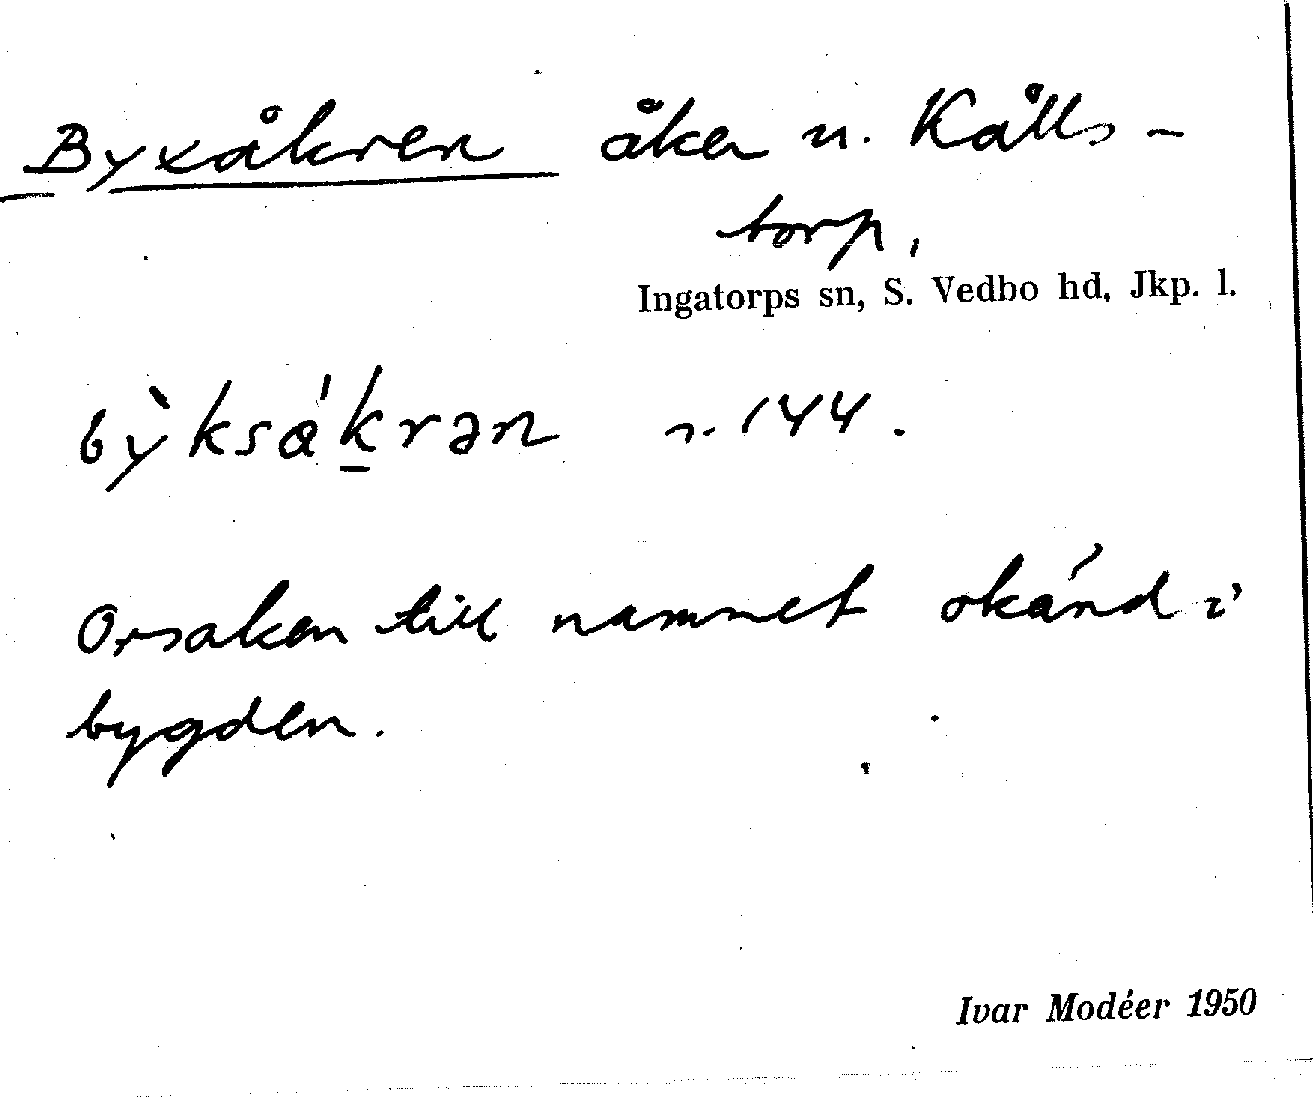 Byxåkren åker u. Kålls-
torp,
Ingatorps sn, S. Vedbo hd, Jkp. l.
bỳksákrən n. 144.
Orsaken till namnet okänd i
bygden.
Ivar Modéer 1950